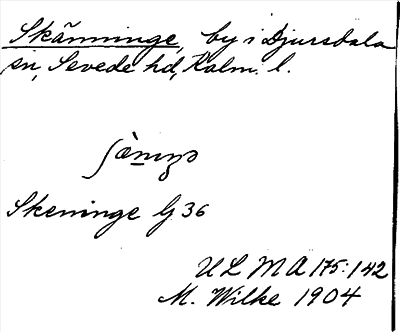 Skänninge, by i Djursdala
sn, Sevede hd, Kalm. l.
Skeninge G 36
ULMA 175:142
M. Wilke 1904